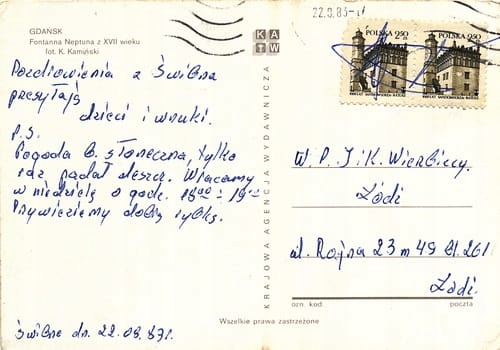 GDAŃSK
Fontanna Neptuna z XVII wieku
fot. K. Kamiński
Pozdrowienia z Świbna
przesyłają
dzieci i wnuki.
P.S.
Pogoda b. słoneczna, tylko
raz padał deszcz. Wracamy
w niedzielę o godz. 18oo - 19oo
Przywieziemy dobrą rybkę.
Świbno dn. 22.08.83r.
KAW
KRAJOWA AGENCJA WYDAWNICZA
22.8.83
POLSKA 2,50 POLSKA 2,50
W. P. J i K. Wierbiccy.
Łódź
ul. Rojna 23 m 49 bl. 261
Łódź.
ozn. kod poczta
Wszelkie prawa zastrzeżone